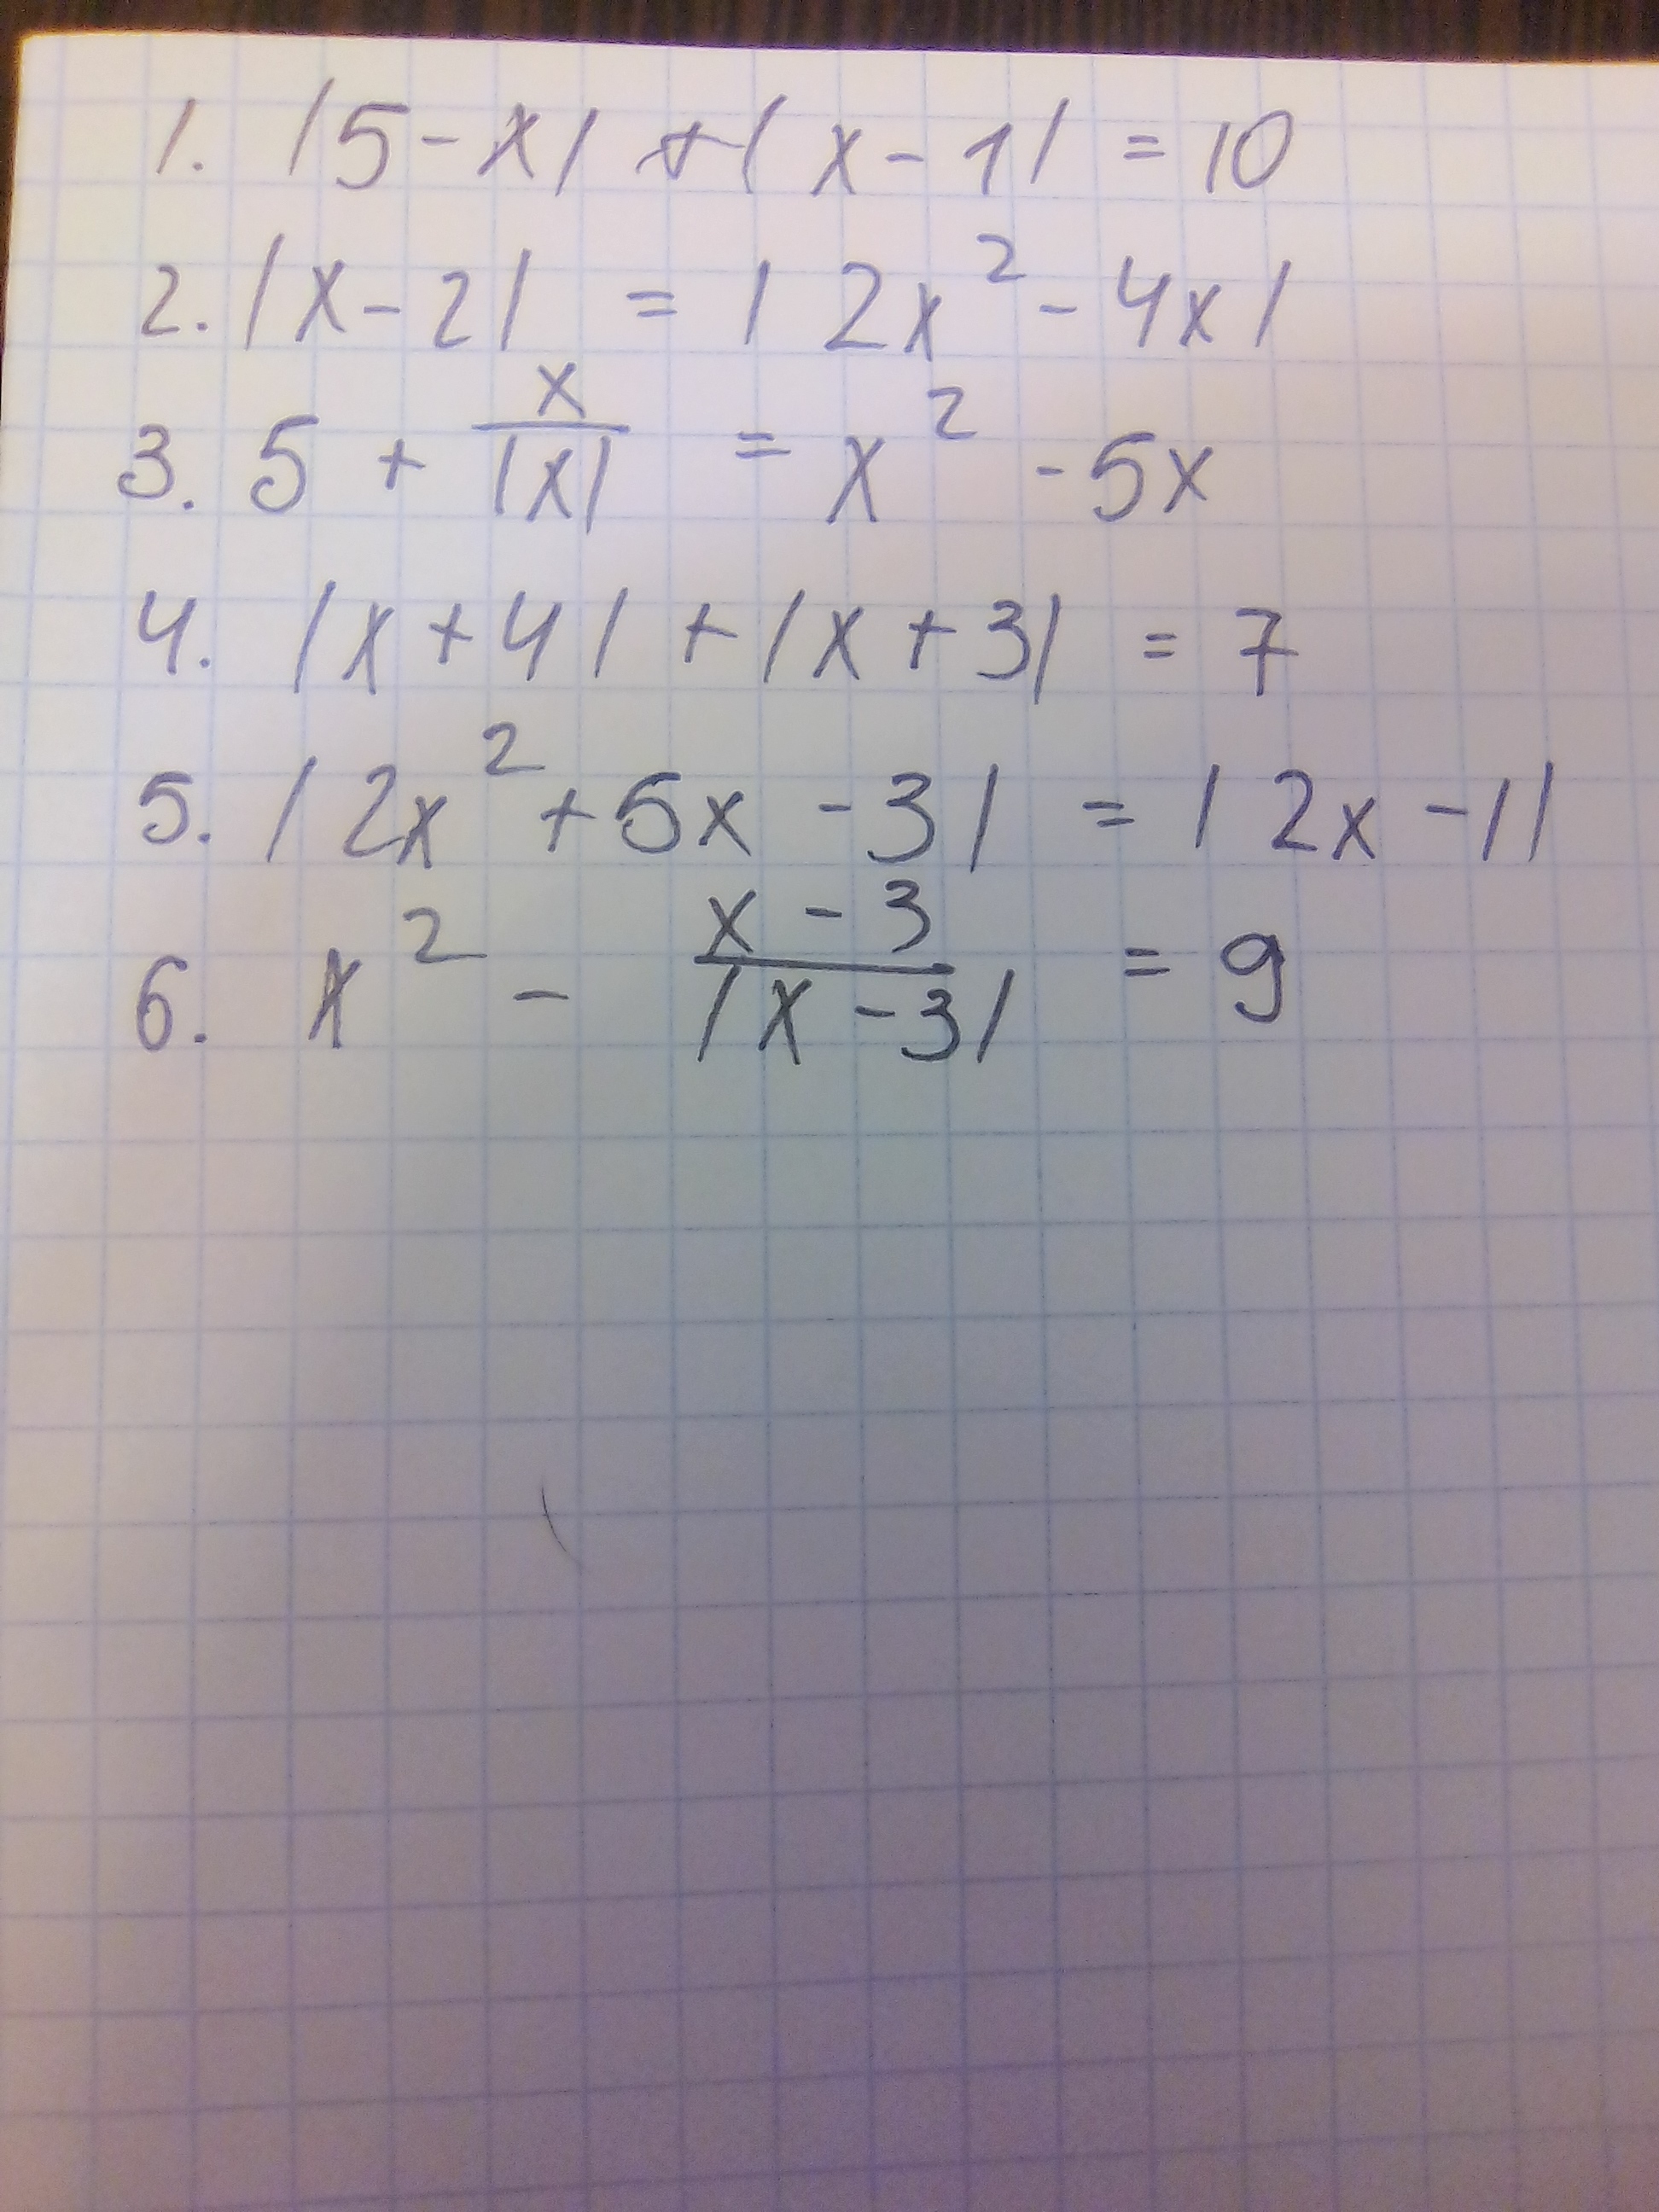 1. |5-x| + |x-1| = 10
2. |x-2| = |2x² - 4x|
3. 5 + x/|x| = x² - 5x
4. |x+4| + |x+3| = 7
5. |2x² + 5x - 3| = |2x - 1|
6. x² - (x-3)/|x-3| = 9